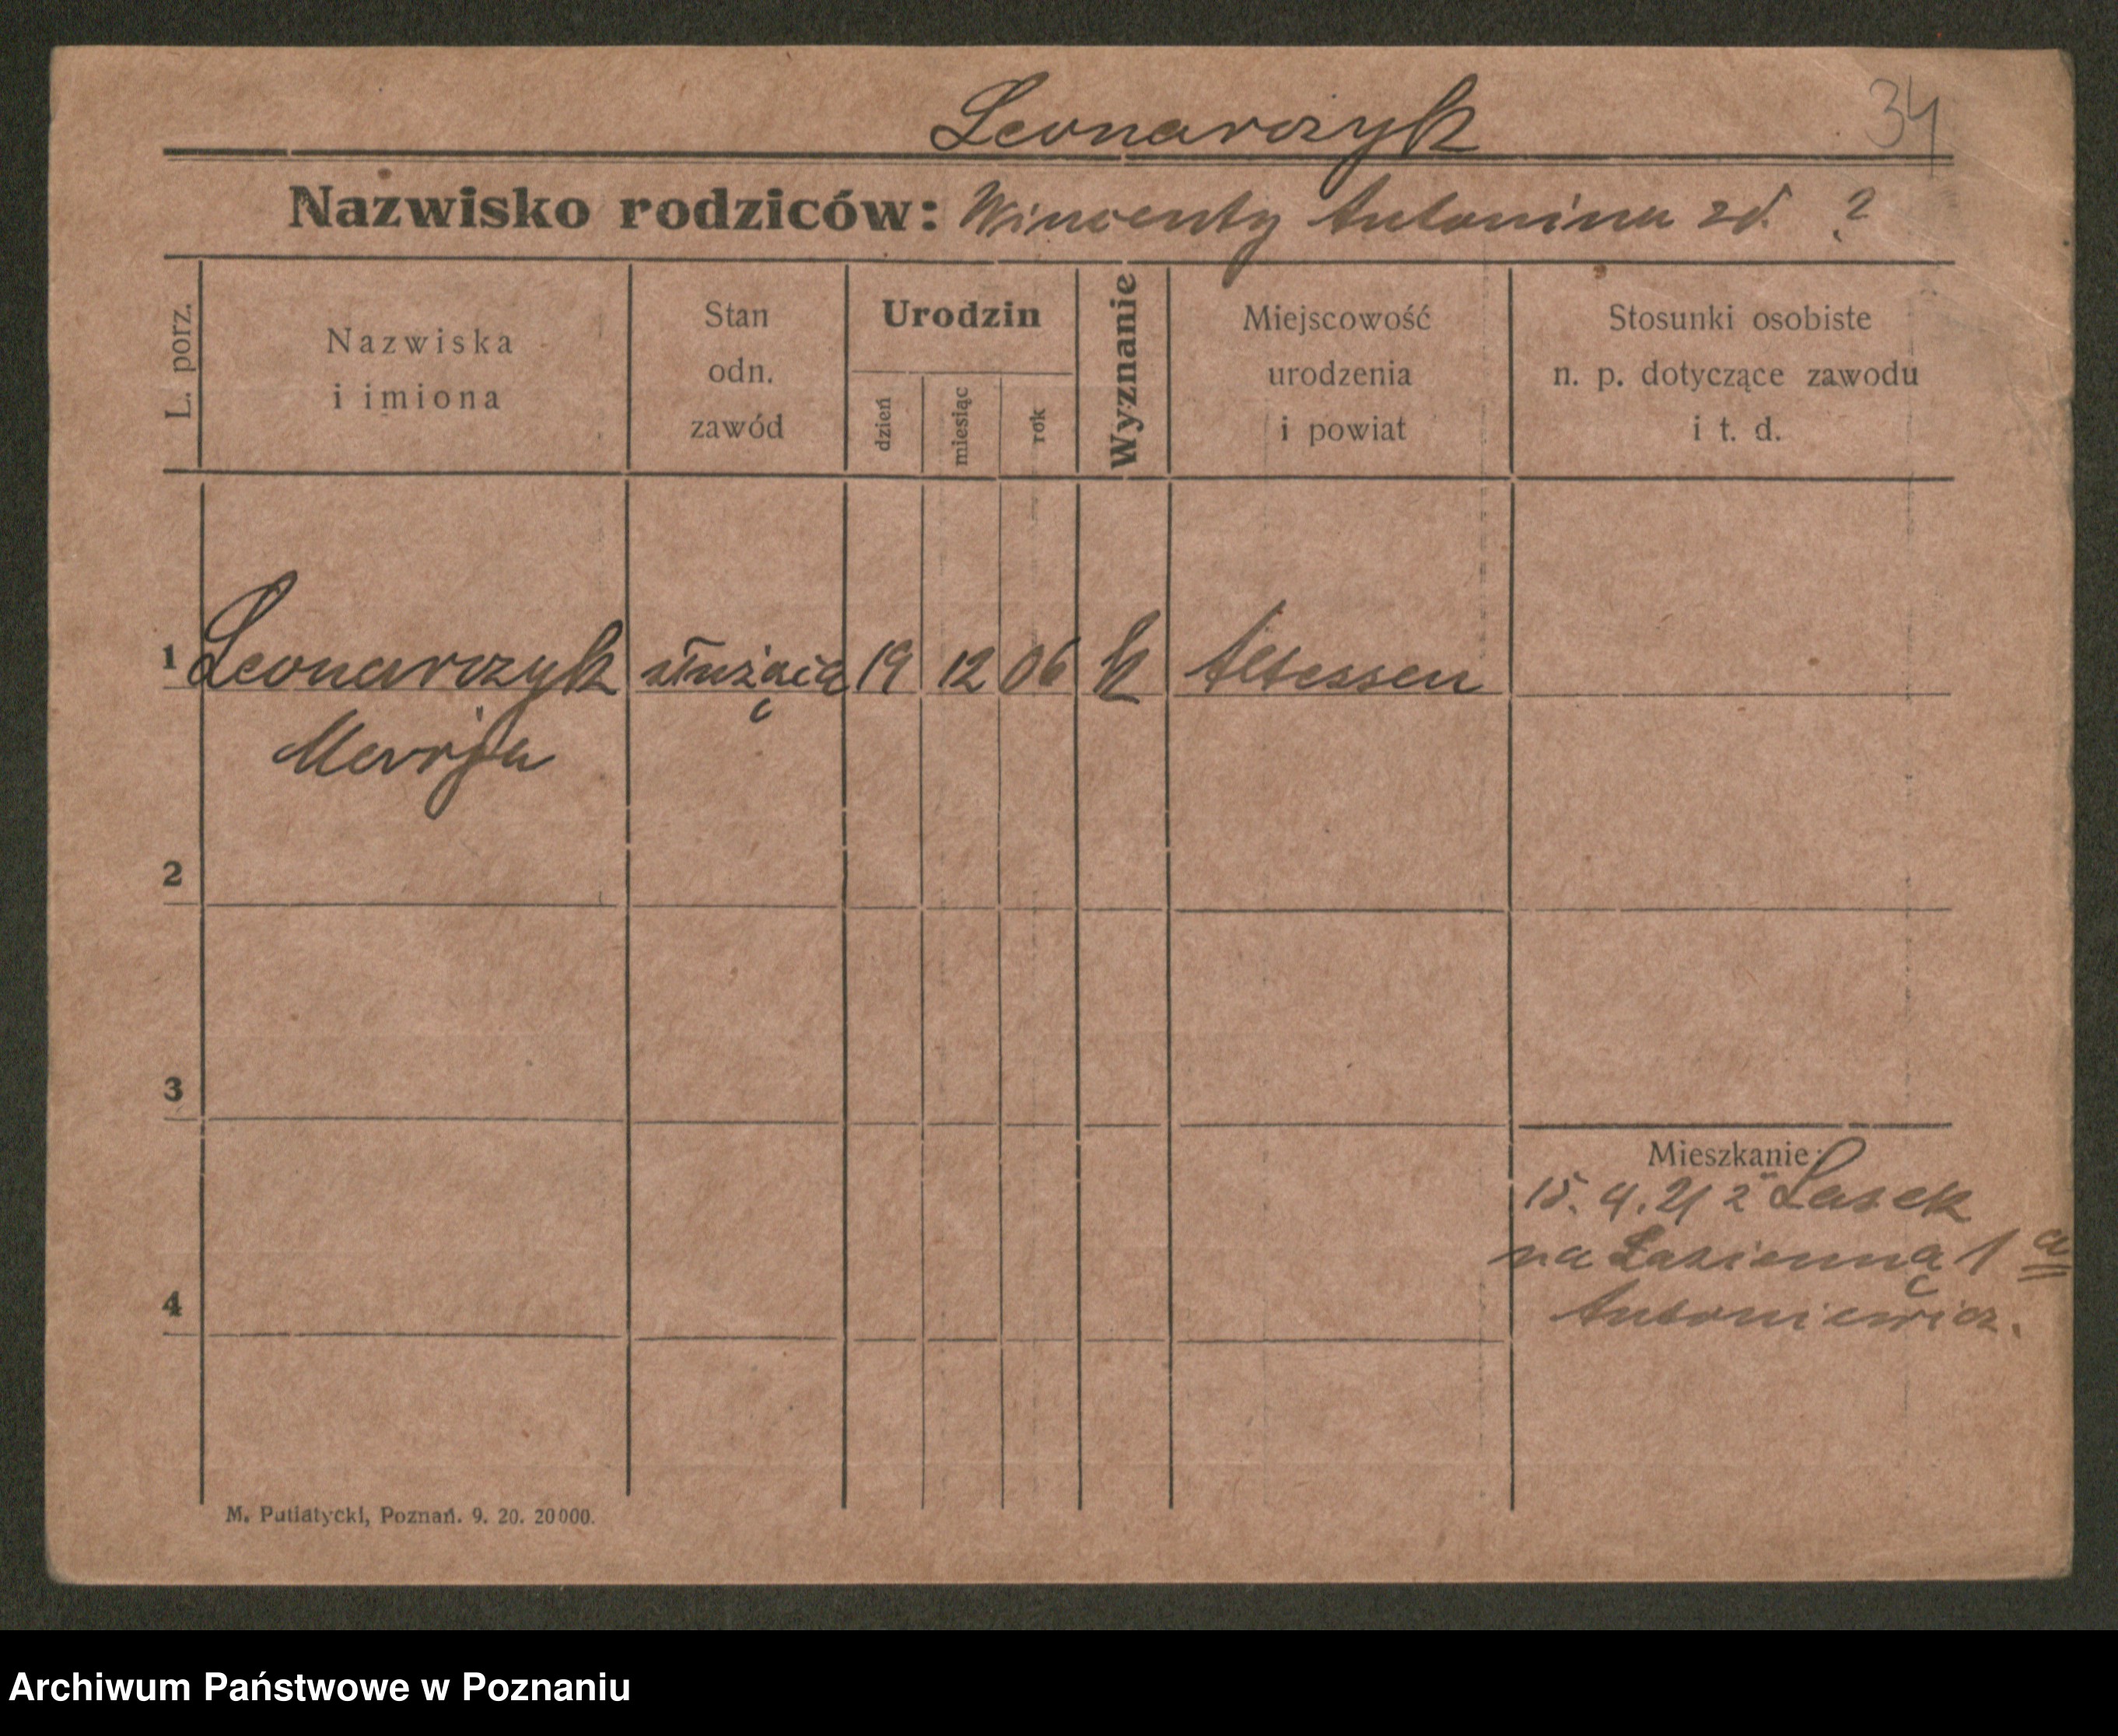 Leonarczyk
34
Nazwisko rodziców: Wincenty Antonina zd. ?
L. porz.
Nazwiska
i imiona
Stan
odn.
zawód
Urodzin
dzień
miesiąc
rok
Wyznanie
Miejscowość
urodzenia
i powiat
Stosunki osobiste
n. p. dotyczące zawodu
i t. d.
1 Leonarczyk służąca 19 12 06 k Altessen
Marja
2
3
Mieszkanie:
15. 4. 21 z Lasek
na Łazienną 1 a
Antoniewicz.
4
M. Putiatycki, Poznań. 9. 20. 20000.
Archiwum Państwowe w Poznaniu